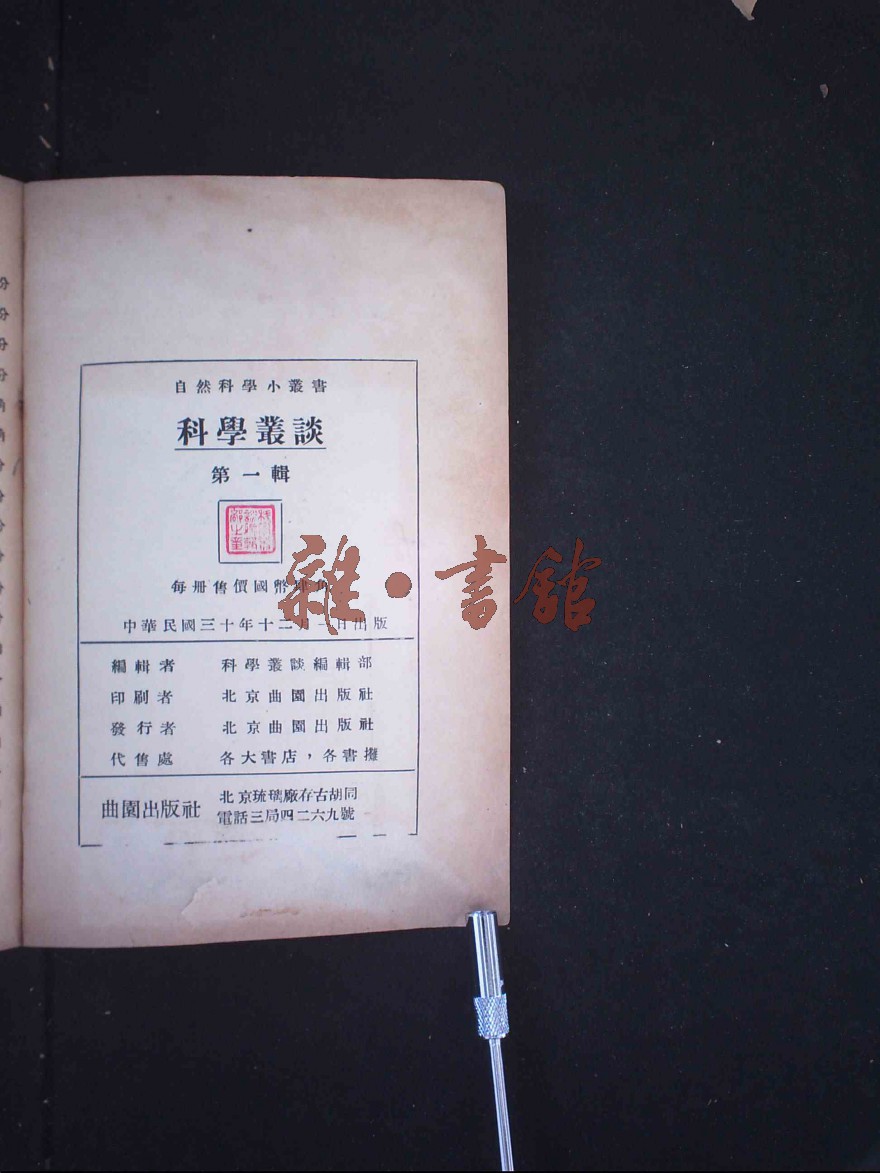 自然科學小叢書
科學叢談
第一輯
每册售價國幣
中華民國三十年十二月一日出版
編輯者 科學叢談編輯部
印刷者 北京曲園出版社
發行者 北京曲園出版社
代售處 各大書店，各書攤
曲園出版社
北京琉璃廠存古胡同
電話三局四二六九號
雜·書館